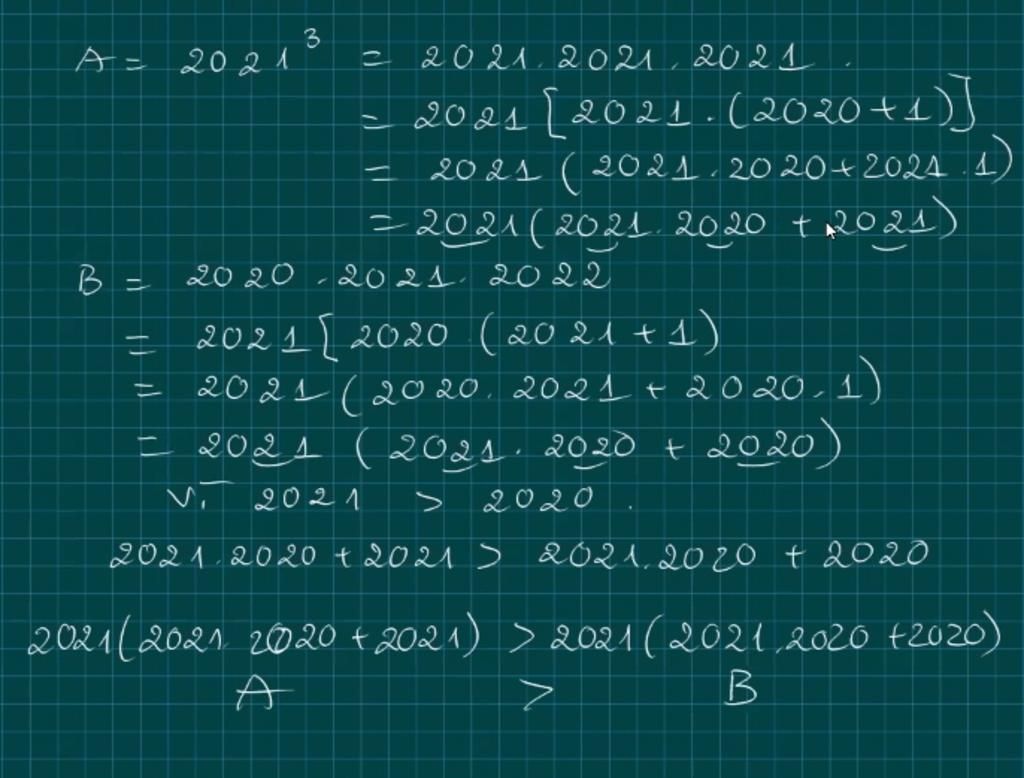 A = 2021³ = 2021.2021.2021.
= 2021[2021.(2020+1)]
= 2021(2021.2020+2021.1)
= 2021(2021.2020+2021)
B = 2020.2021.2022
= 2021[2020.(2021+1)
= 2021(2020.2021+2020.1)
= 2021(2021.2020+2020)
Vì 2021 > 2020.
2021.2020+2021 > 2021.2020+2020
2021(2021.2020+2021) > 2021(2021.2020+2020)
A > B